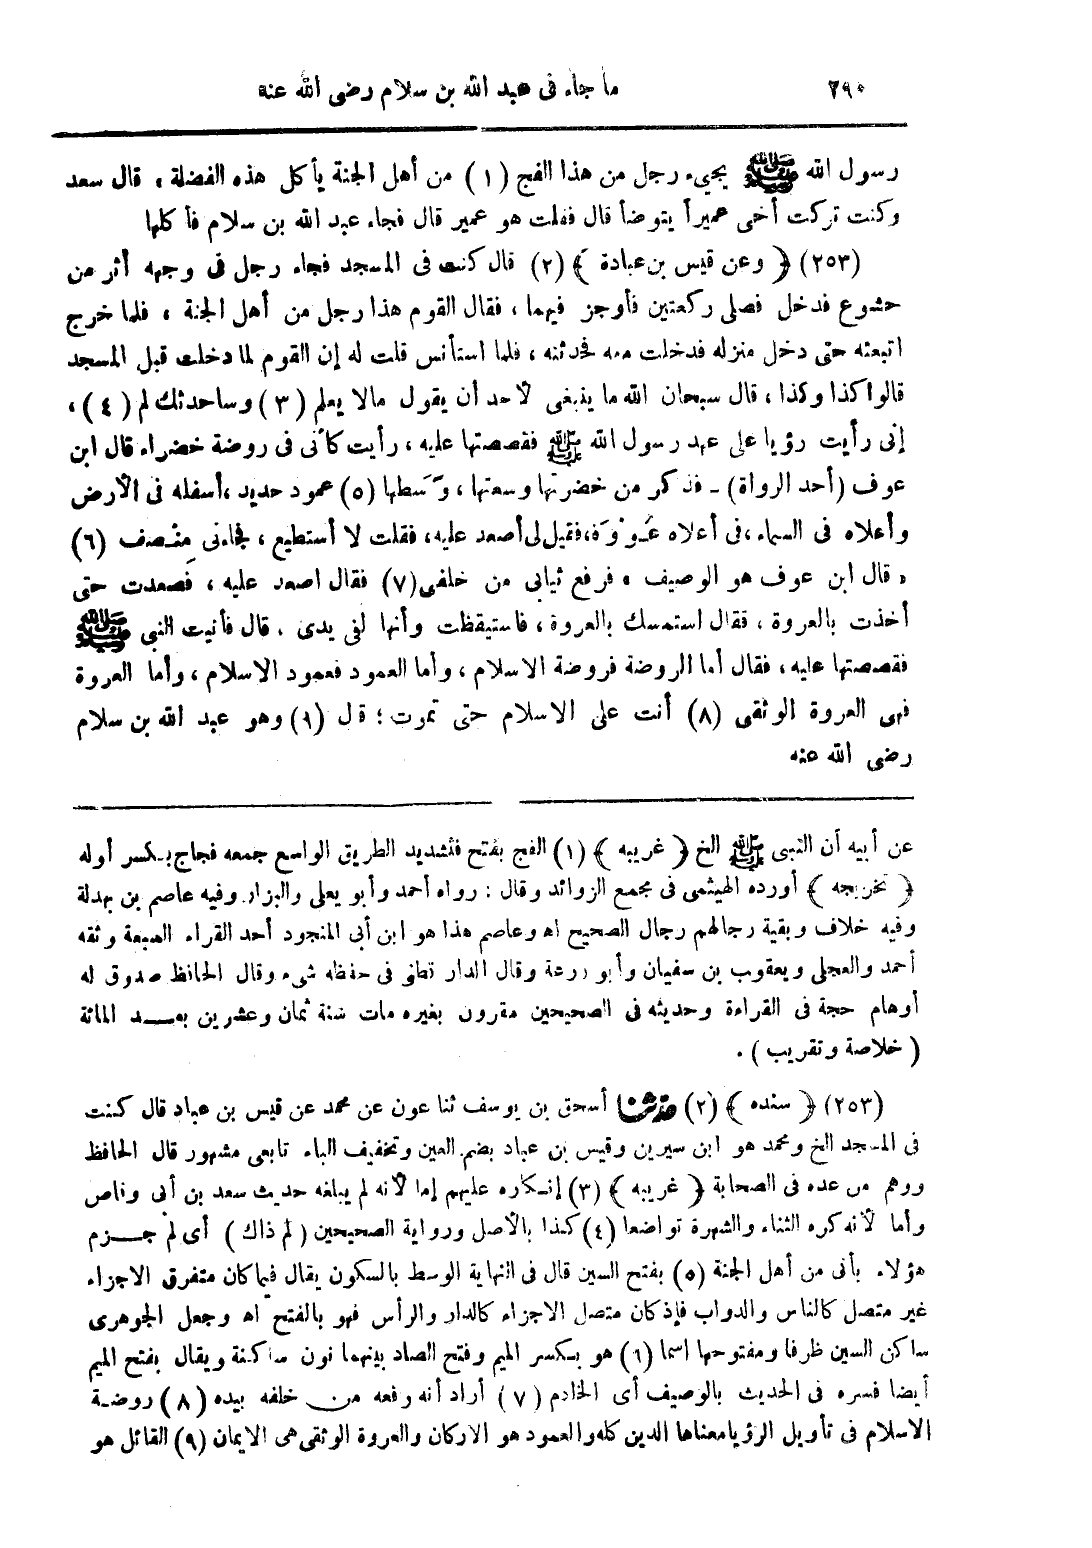 ٢٩٠ ما جاء فى عبد الله بن سلام رضى الله عنه
رسول الله ﷺ يجيء رجل من هذا الفج (١) من أهل الجنة يأكل هذه الفضلة ، قال سعد
وكنت تركت أخى عميراً يتوضأ قال فقلت هو عمير قال فجاء عبد الله بن سلام فأكلها
(٢٥٣) ﴿ وعن قيس بن عبادة ﴾ (٢) قال كنت فى المسجد فجاء رجل فى وجهه أثر من
خشوع فدخل فصلى ركعتين فأوجز فيهما ، فقال القوم هذا رجل من أهل الجنة ، فلما خرج
اتبعته حتى دخل منزله فدخلت معه فحدثته ، فلما استأنس قلت له إن القوم لما دخلت قبل المسجد
قالوا كذا وكذا ، قال سبحان الله ما ينبغى لأحد أن يقول مالا يعلم (٣) وساحدثك لم (٤) ،
إنى رأيت رؤيا على عهد رسول الله ﷺ فقصصتها عليه ، رأيت كأنى فى روضة خضراء قال ابن
عوف (أحد الرواة) ـ فذكر من خضرتها وسعتها ، وَسَطها (٥) عمود حديد ، أسفله فى الأرض
وأعلاه فى السماء ، فى أعلاه عُروَة ، فقيل لى أصعد عليه ، فقلت لا أستطيع ، فجاءنى مِنْصف (٦)
« قال ابن عوف هو الوصيف » فرفع ثيابى من خلفى (٧) فقال اصعد عليه ، فصعدت حتى
أخذت بالعروة ، فقال استمسك بالعروة ، فاستيقظت وأنها لفى يدى ، قال فأتيت النبى ﷺ
فقصصتها عليه ، فقال أما الروضة فروضة الاسلام ، وأما العمود فعمود الاسلام ، وأما العروة
فهى العروة الوثقى (٨) أنت على الاسلام حتى تموت ؛ قال (٩) وهو عبد الله بن سلام
رضى الله عنه
عن أبيه أن النبى ﷺ الخ ﴿ غريبه ﴾ (١) الفج بفتح فتشديد الطريق الواسع جمعه فجاج بكسر أوله
﴿ تخريجه ﴾ أورده الهيثمى فى مجمع الزوائد وقال : رواه أحمد وأبو يعلى والبزار وفيه عاصم بن بهدلة
وفيه خلاف وبقية رجالهم رجال الصحيح اه وعاصم هذا هو ابن أبى المنجود أحد القراء السبعة وثقه
أحمد والعجلى ويعقوب بن سفيان وأبو زرعة وقال الدار قطنى فى حفظه شىء وقال الحافظ صدوق له
أوهام حجة فى القراءة وحديثه فى الصحيحين مقرون بغيره مات سنة ثمان وعشرين بعد المائة
( خلاصة وتقريب ) .
(٢٥٣) ﴿ سنده ﴾ (٢) حدثنا أسحق بن يوسف ثنا عون عن محمد عن قيس بن عباد قال كنت
فى المسجد الخ ومحمد هو ابن سيرين وقيس بن عباد بضم العين وتخفيف الباء تابعى مشهور قال الحافظ
ووهم من عده فى الصحابة ﴿ غريبه ﴾ (٣) إنكاره عليهم إما لأنه لم يبلغه حديث سعد بن أبى وقاص
وأما لأنه كره الثناء والشهرة تواضعا (٤) كذا بالأصل ورواية الصحيحين ( لم ذاك ) أى لم جزم
هؤلاء بأنى من أهل الجنة (٥) بفتح السين قال فى النهاية الوسط بالسكون يقال فيما كان متفرق الاجزاء
غير متصل كالناس والدواب فإذكان متصل الاجزاء كالدار والرأس فهو بالفتح اه وجعل الجوهرى
ساكن السين ظرفا ومفتوحها اسما (٦) هو بكسر الميم وفتح الصاد بينهما نون ساكنة ويقال بفتح الميم
أيضا فسره فى الحديث بالوصيف أى الخادم (٧) أراد أنه رفعه من خلفه بيده (٨) روضة
الاسلام فى تأويل الرؤيا معناها الدين كله والعمود هو الاركان والعروة الوثقى هى الايمان (٩) القائل هو